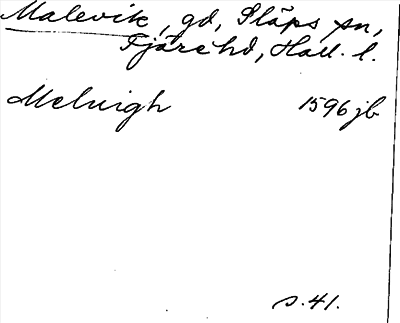 Malevik, gd, Släps sn,
Fjäre hd, Hall. l.
Meluigh 1596 jb
s. 41.